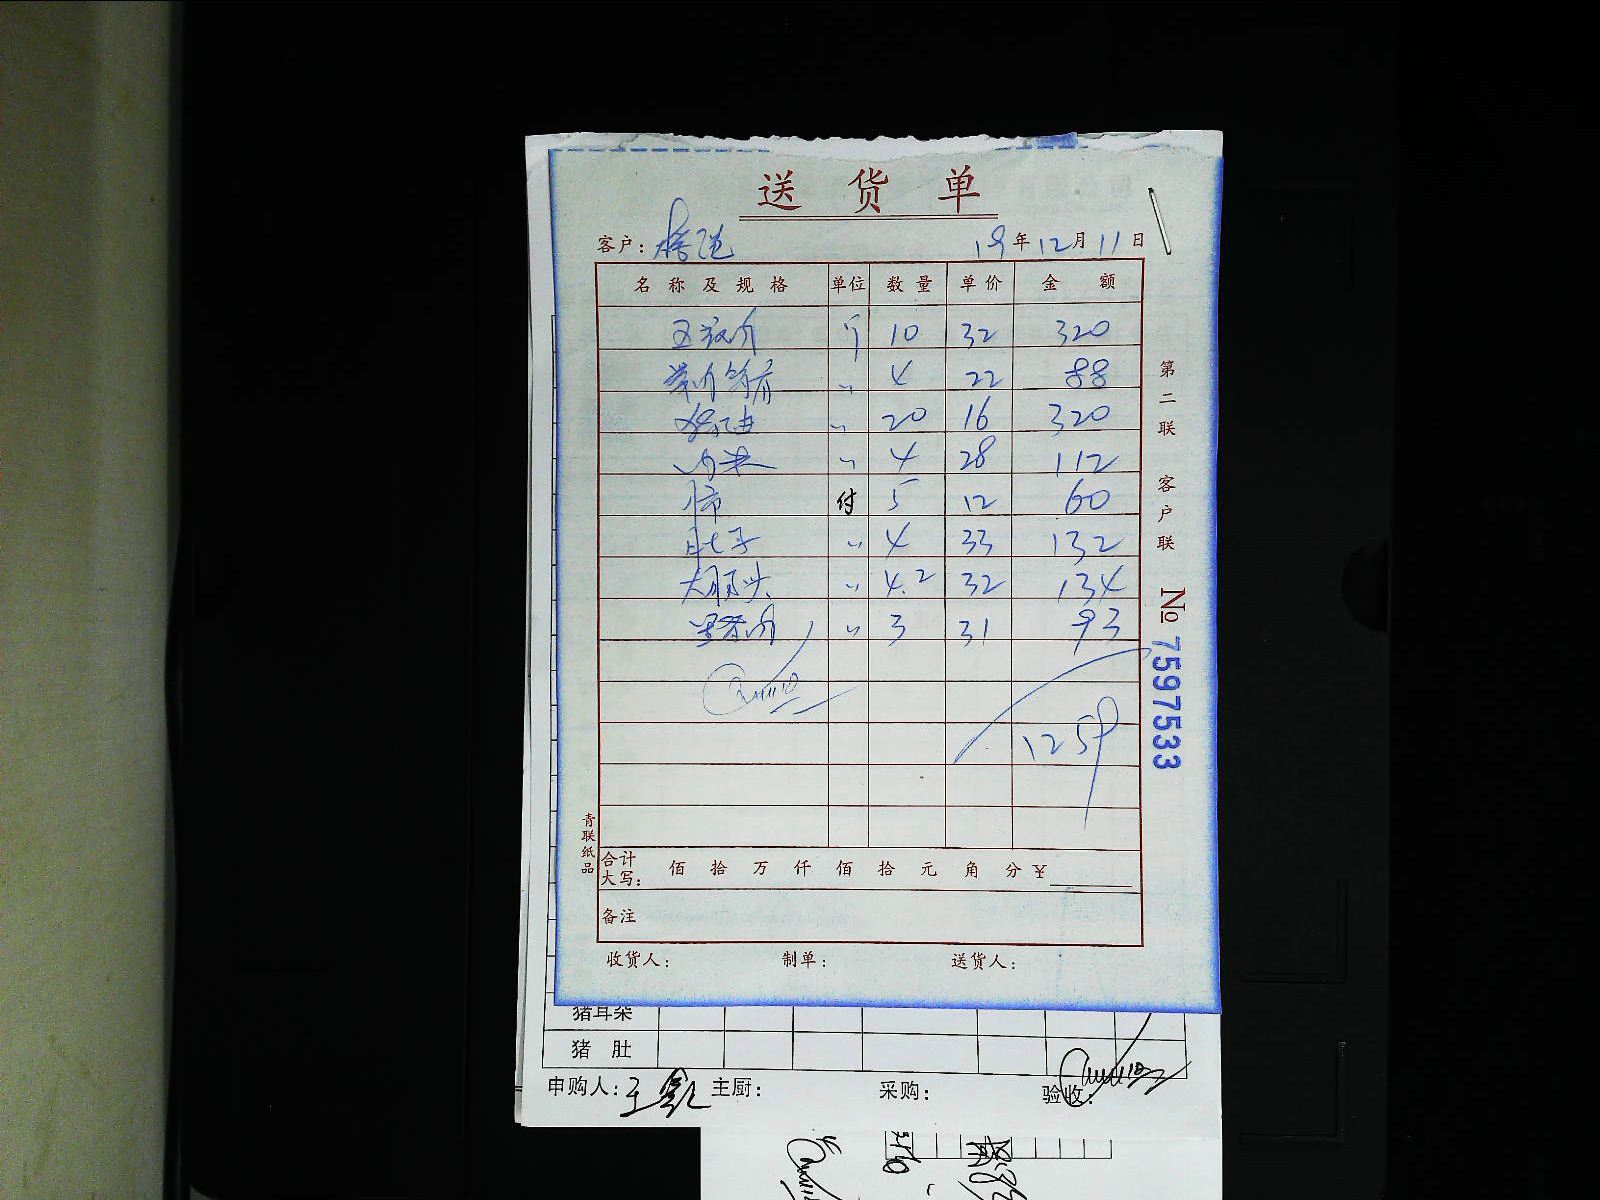 送货单
客户:
19年12月11日
名称及规格 单位 数量 单价 金额
五花肉 斤 10 32 320
带肉筒骨 〃 4 22 88
猪油 〃 20 16 320
肉末 〃 4 28 112
付 5 12 60
肚子 〃 4 33 132
大肠头 〃 4.2 32 134
〃 3 31 93
1259
合计大写: 佰 拾 万 仟 佰 拾 元 角 分 ¥
备注
收货人: 制单: 送货人:
第二联 客户联
No 7597533
青联纸品
猪耳朵
猪肚
申购人: 主厨: 采购: 验收: